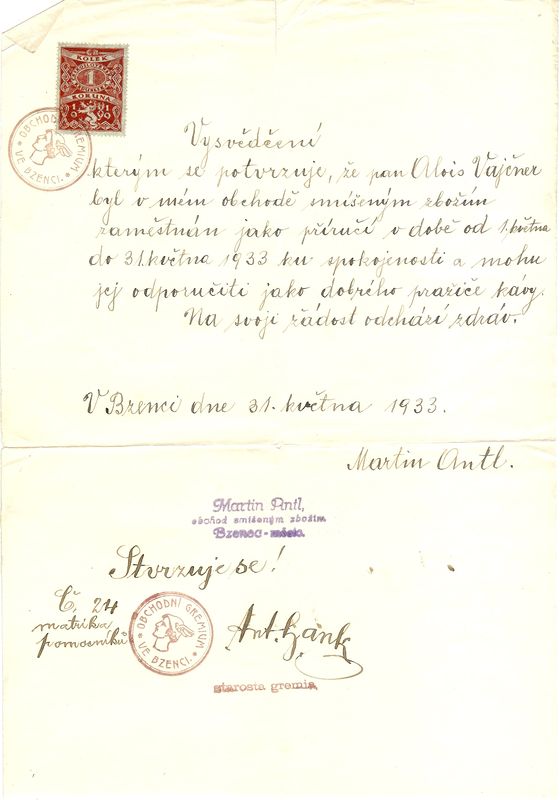 KOLEK
1
KORUNA
OBCHODNÍ GREMIUM
VE BZENCI.
Vysvědčení
kterým se potvrzuje, že pan Alois Vajčner
byl v mém obchodě smíšeným zbožím
zaměstnán jako příručí v době od 1. května
do 31. května 1933 ku spokojenosti a mohu
jej odporučiti jako dobrého pražiče kávy.
Na svoji žádost odchází zdráv.
V Bzenci dne 31. května 1933.
Martin Antl.
Martin Antl,
obchod smíšeným zbožím
Bzenec-město.
Stvrzuje se!
Č. 24
matrika
pomocníků
OBCHODNÍ GREMIUM
VE BZENCI.
Ant.
starosta gremia.